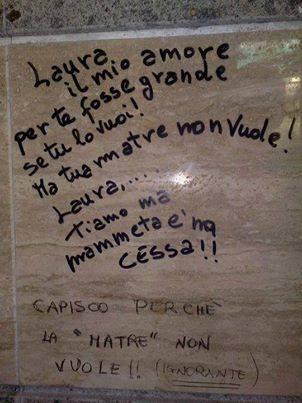 Laura,
il mio amore
per te fosse grande
se tu lo vuoi!
Ma tua matre non vuole!
Laura,....
tiamo ma
mammeta e' na
CESSA!!
CAPISCO PERCHE'
LA "MATRE" NON
VUOLE!! (IGNORANTE)